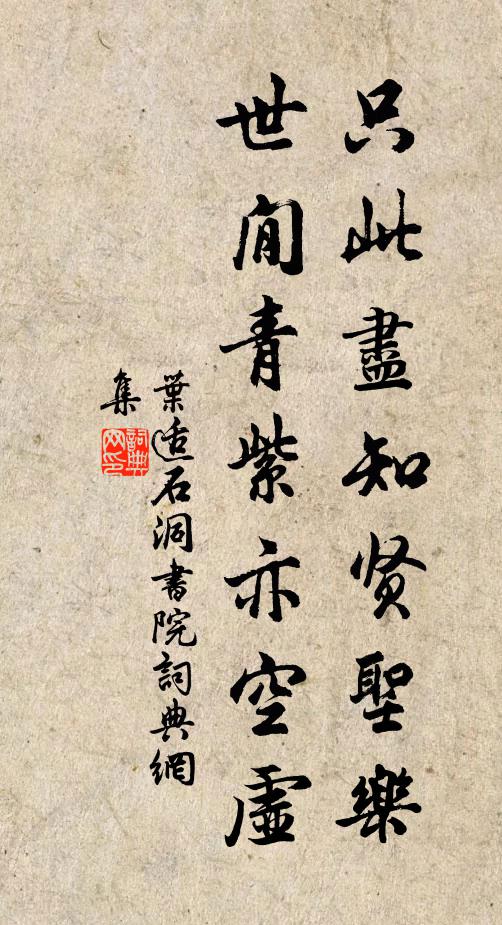 只此盡知贤聖樂
世间青紫亦空虛
葉适石洞書院詞典網
集
詞典
网印